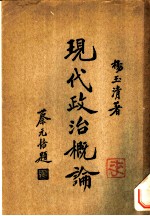 楊玉清著
現代政治概論
蔡元培題